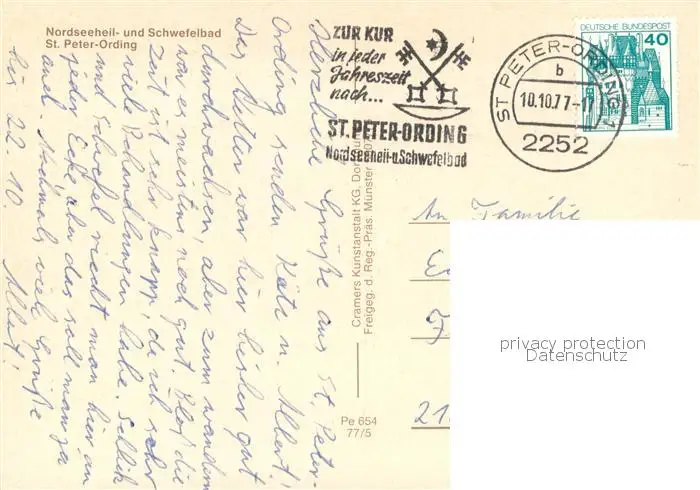 Nordseeheil- und Schwefelbad
St. Peter-Ording
ZUR KUR
in jeder
Jahreszeit
nach...
ST. PETER-ORDING
Nordseeheil-u.Schwefelbad
ST. PETER-ORDING 1
b
10.10.77-17
2252
DEUTSCHE BUNDESPOST
40
Herzliche Grüße aus St. Peter-
Ording senden Käte u. Albert!
Das Wetter war hier bisher gut
durchwachsen, aber zum wandern
meistens noch gut. Bloß die
Zeit ist sehr knapp, da ich sehr
viele Behandlungen habe. Schlick
und Schwefel riecht man hier an
jeder Ecke, aber das soll man ja
auch. Nochmals viele Grüße
bis 22.10. Albert!
Cramers Kunstanstalt KG, Dortmund
Freigeg. d. Reg.-Präs. Münster
Pe 654
77/5
An Familie
21
privacy protection
Datenschutz